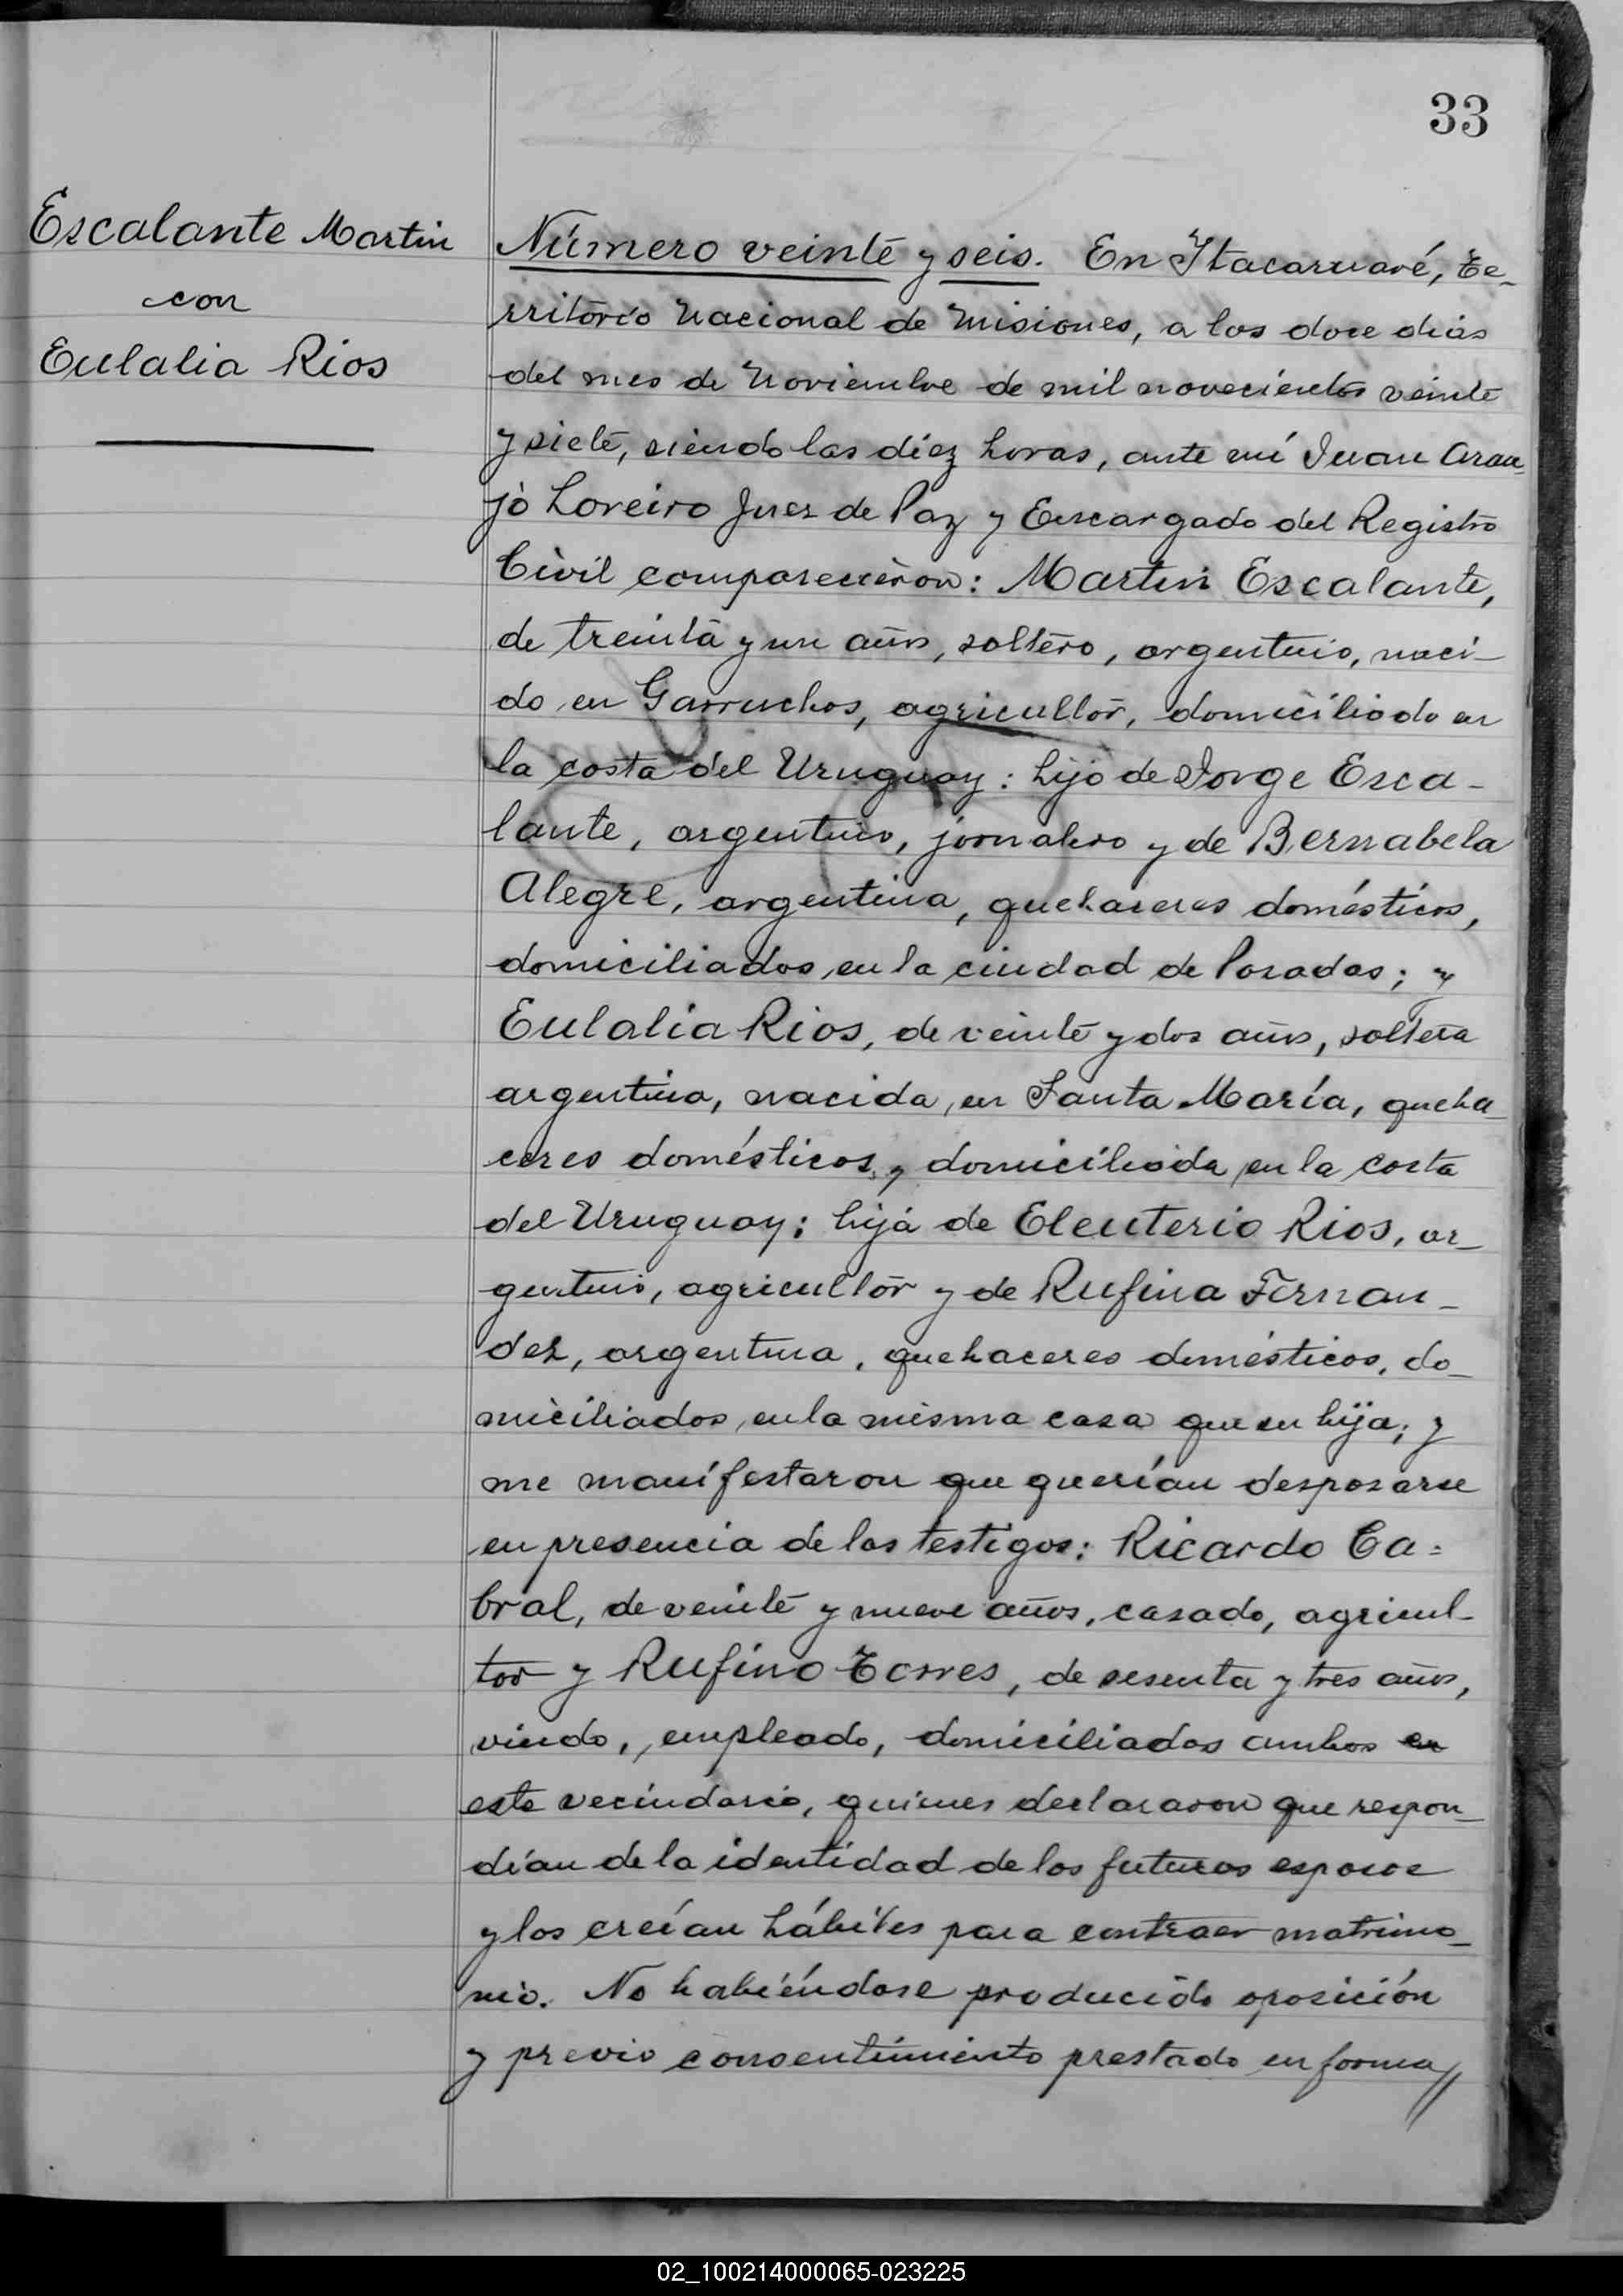 33
Escalante Martin
con
Eulalia Rios
Número veinte y seis. En Itacaruaré, Te-
rritorio Nacional de Misiones, a los doce dias
del mes de Noviembre de mil novecientos veinte
y siete, siendo las diez horas, ante mí Juan Arau-
jo Loreiro Juez de Paz y Encargado del Registro
Civil comparecieron: Martin Escalante,
de treinta y un años, soltero, argentino, naci-
do en Garruchos, agricultor, domiciliado en
la costa del Uruguay: hijo de Jorge Esca-
lante, argentino, jornalero y de Bernabela
Alegre, argentina, quehaceres domésticos,
domiciliados en la ciudad de Posadas; y
Eulalia Rios, de veinte y dos años, soltera
argentina, nacida en Santa María, queha-
ceres domésticos, domiciliada en la costa
del Uruguay; hija de Eleuterio Rios, ar-
gentino, agricultor y de Rufina Fernan-
dez, argentina, quehaceres domésticos, do-
miciliados en la misma casa que su hija; y
me manifestaron que querían desposarse
en presencia de los testigos: Ricardo Ca=
bral, de veinte y nueve años, casado, agricul-
tor y Rufino Torres, de sesenta y tres años,
viudo, empleado, domiciliados ambos en
este vecindario, quienes declararon que respon-
dían de la identidad de los futuros esposos
y los creían hábiles para contraer matrimo-
nio. No habiéndose producido oposición
y previo consentimiento prestado en forma//
02_100214000065-023225